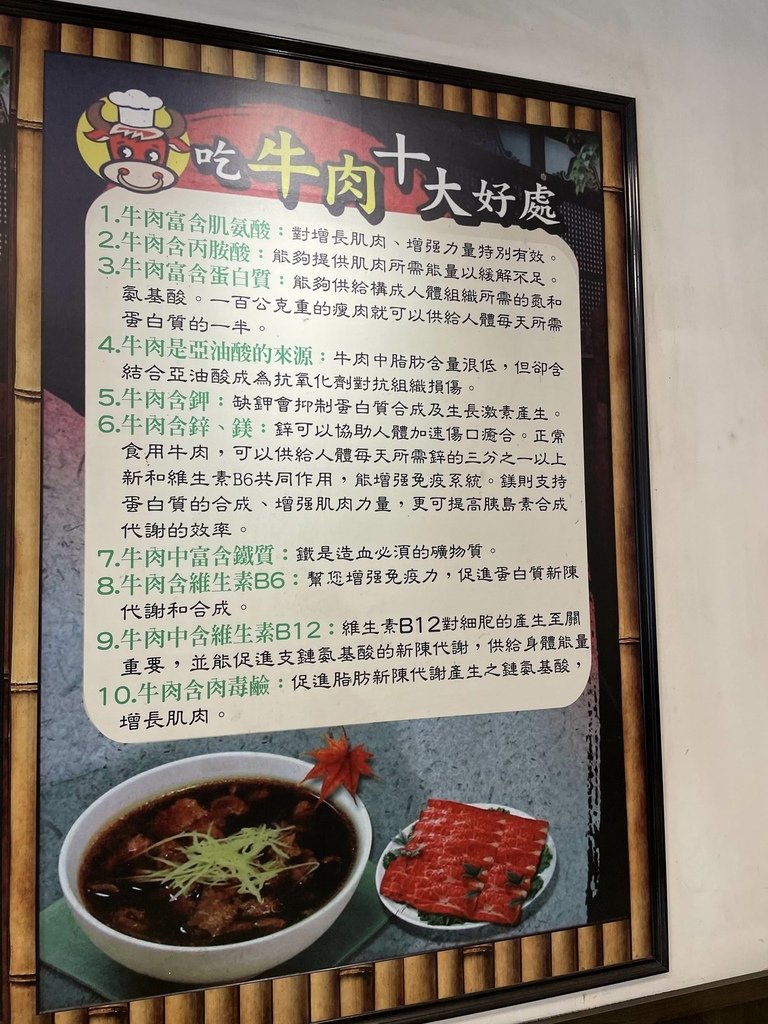 吃牛肉十大好處
1.牛肉富含肌氨酸：對增長肌肉、增強力量特別有效。
2.牛肉含丙胺酸：能夠提供肌肉所需能量以緩解不足。
3.牛肉富含蛋白質：能夠供給構成人體組織所需的氮和
氨基酸。一百公克重的瘦肉就可以供給人體每天所需
蛋白質的一半。
4.牛肉是亞油酸的來源：牛肉中脂肪含量很低，但卻含
結合亞油酸成為抗氧化劑對抗組織損傷。
5.牛肉含鉀：缺鉀會抑制蛋白質合成及生長激素產生。
6.牛肉含鋅、鎂：鋅可以協助人體加速傷口癒合。正常
食用牛肉，可以供給人體每天所需鋅的三分之一以上
新和維生素B6共同作用，能增強免疫系統。鎂則支持
蛋白質的合成、增強肌肉力量，更可提高胰島素合成
代謝的效率。
7.牛肉中富含鐵質：鐵是造血必須的礦物質。
8.牛肉含維生素B6：幫您增強免疫力，促進蛋白質新陳
代謝和合成。
9.牛肉中含維生素B12：維生素B12對細胞的產生至關
重要，並能促進支鏈氨基酸的新陳代謝，供給身體能量
10.牛肉含肉毒鹼：促進脂肪新陳代謝產生之鏈氨基酸，
增長肌肉。